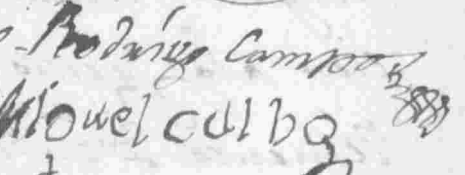 Rodrigo Campos
Miguel Culba